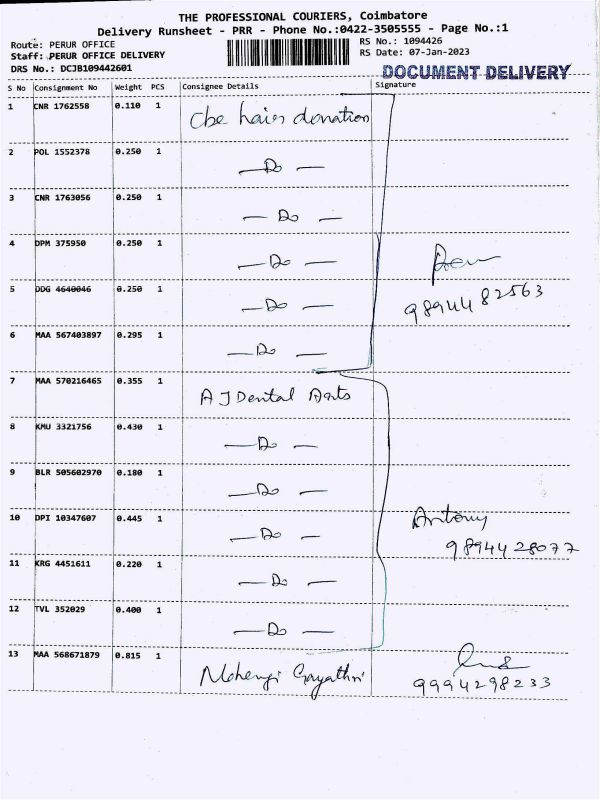 THE PROFESSIONAL COURIERS, Coimbatore
Delivery Runsheet - PRR - Phone No.:0422-3505555 - Page No.:1
Route: PERUR OFFICE
RS No.: 1094426
Staff: PERUR OFFICE DELIVERY
RS Date: 07-Jan-2023
DRS No.: DCJB109442601
DOCUMENT DELIVERY
S No Consignment No Weight PCS Consignee Details Signature
1 CNR 1762558 0.110 1 Cbe hair donation
2 POL 1552378 0.250 1 — Do —
3 CNR 1763056 0.250 1 — Do —
4 DPM 375950 0.250 1 — Do —
5 DDG 4640046 0.250 1 — Do —
9894482563
6 MAA 567403897 0.295 1 — Do —
7 MAA 570216465 0.355 1 A J Dental Arts
8 KMU 3321756 0.430 1 — Do —
9 BLR 505602970 0.180 1 — Do —
10 DPI 10347607 0.445 1 — Do — Antony
9894428077
11 KRG 4451611 0.220 1 — Do —
12 TVL 352029 0.400 1 — Do —
13 MAA 568671879 0.815 1 Gayathri
9994298233